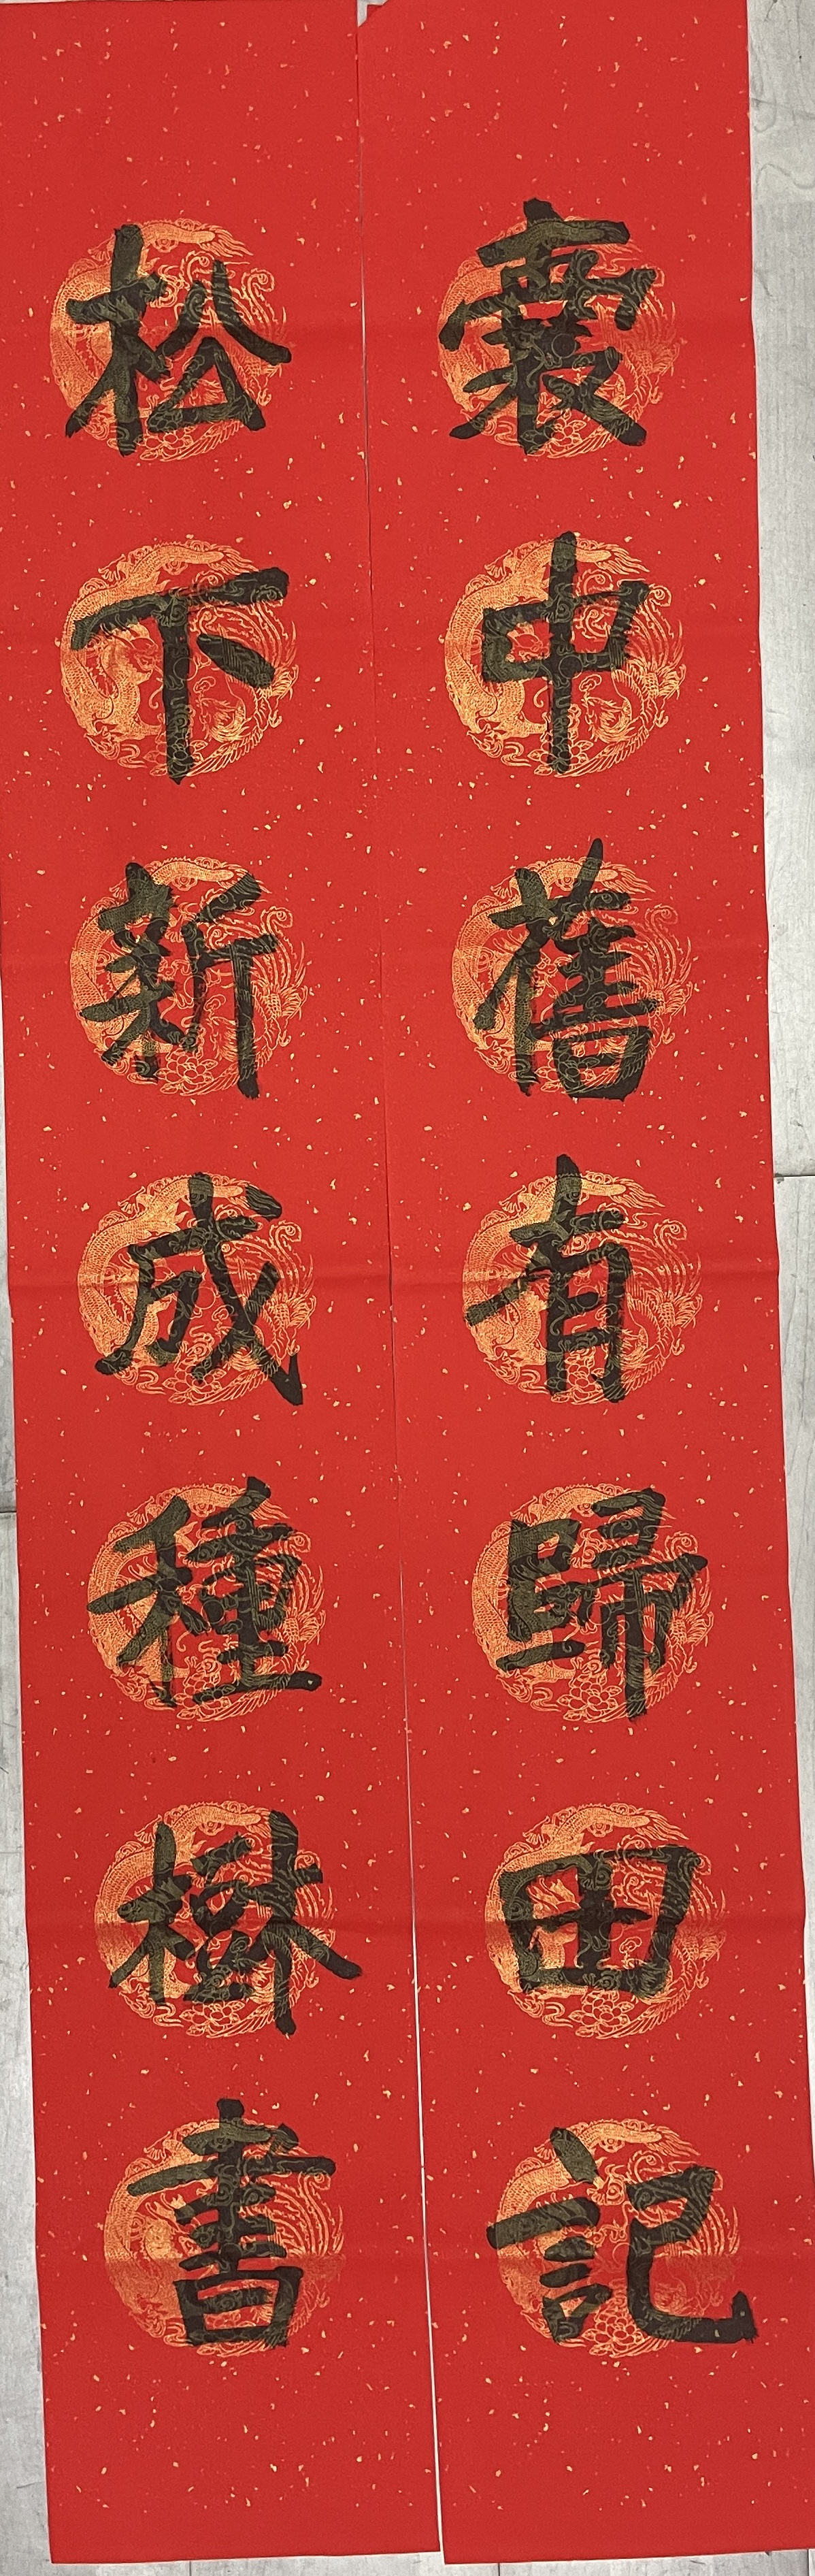 囊中舊有歸田記
松下新成種樹書